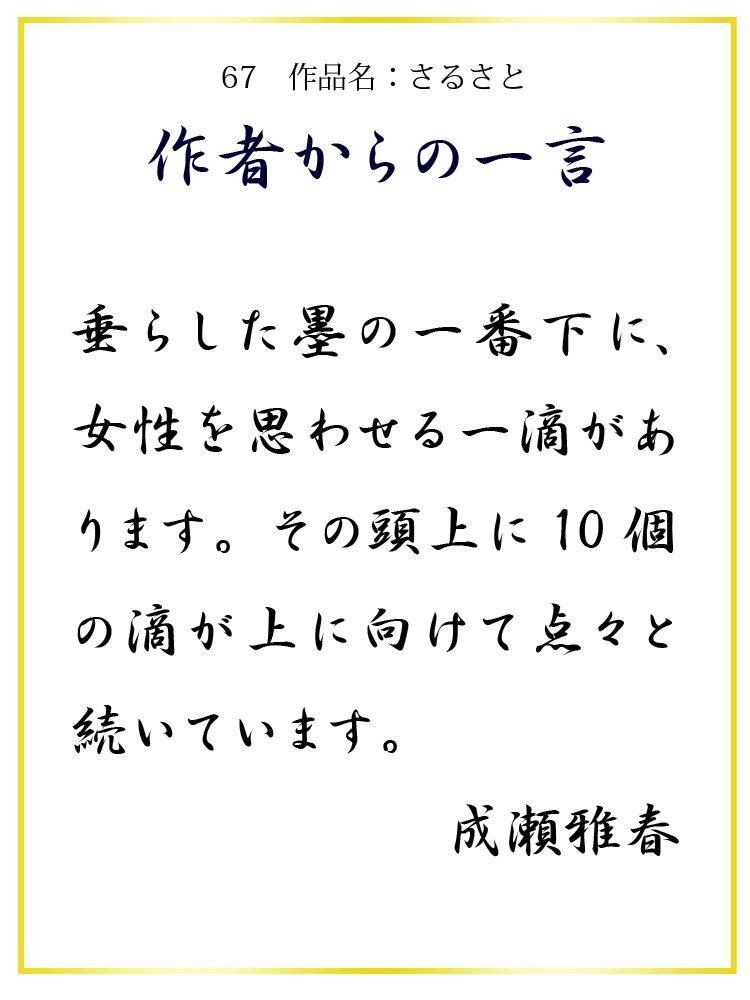 67　作品名：さるさと
作者からの一言
垂らした墨の一番下に、
女性を思わせる一滴があ
ります。その頭上に10個
の滴が上に向けて点々と
続いています。
成瀬雅春